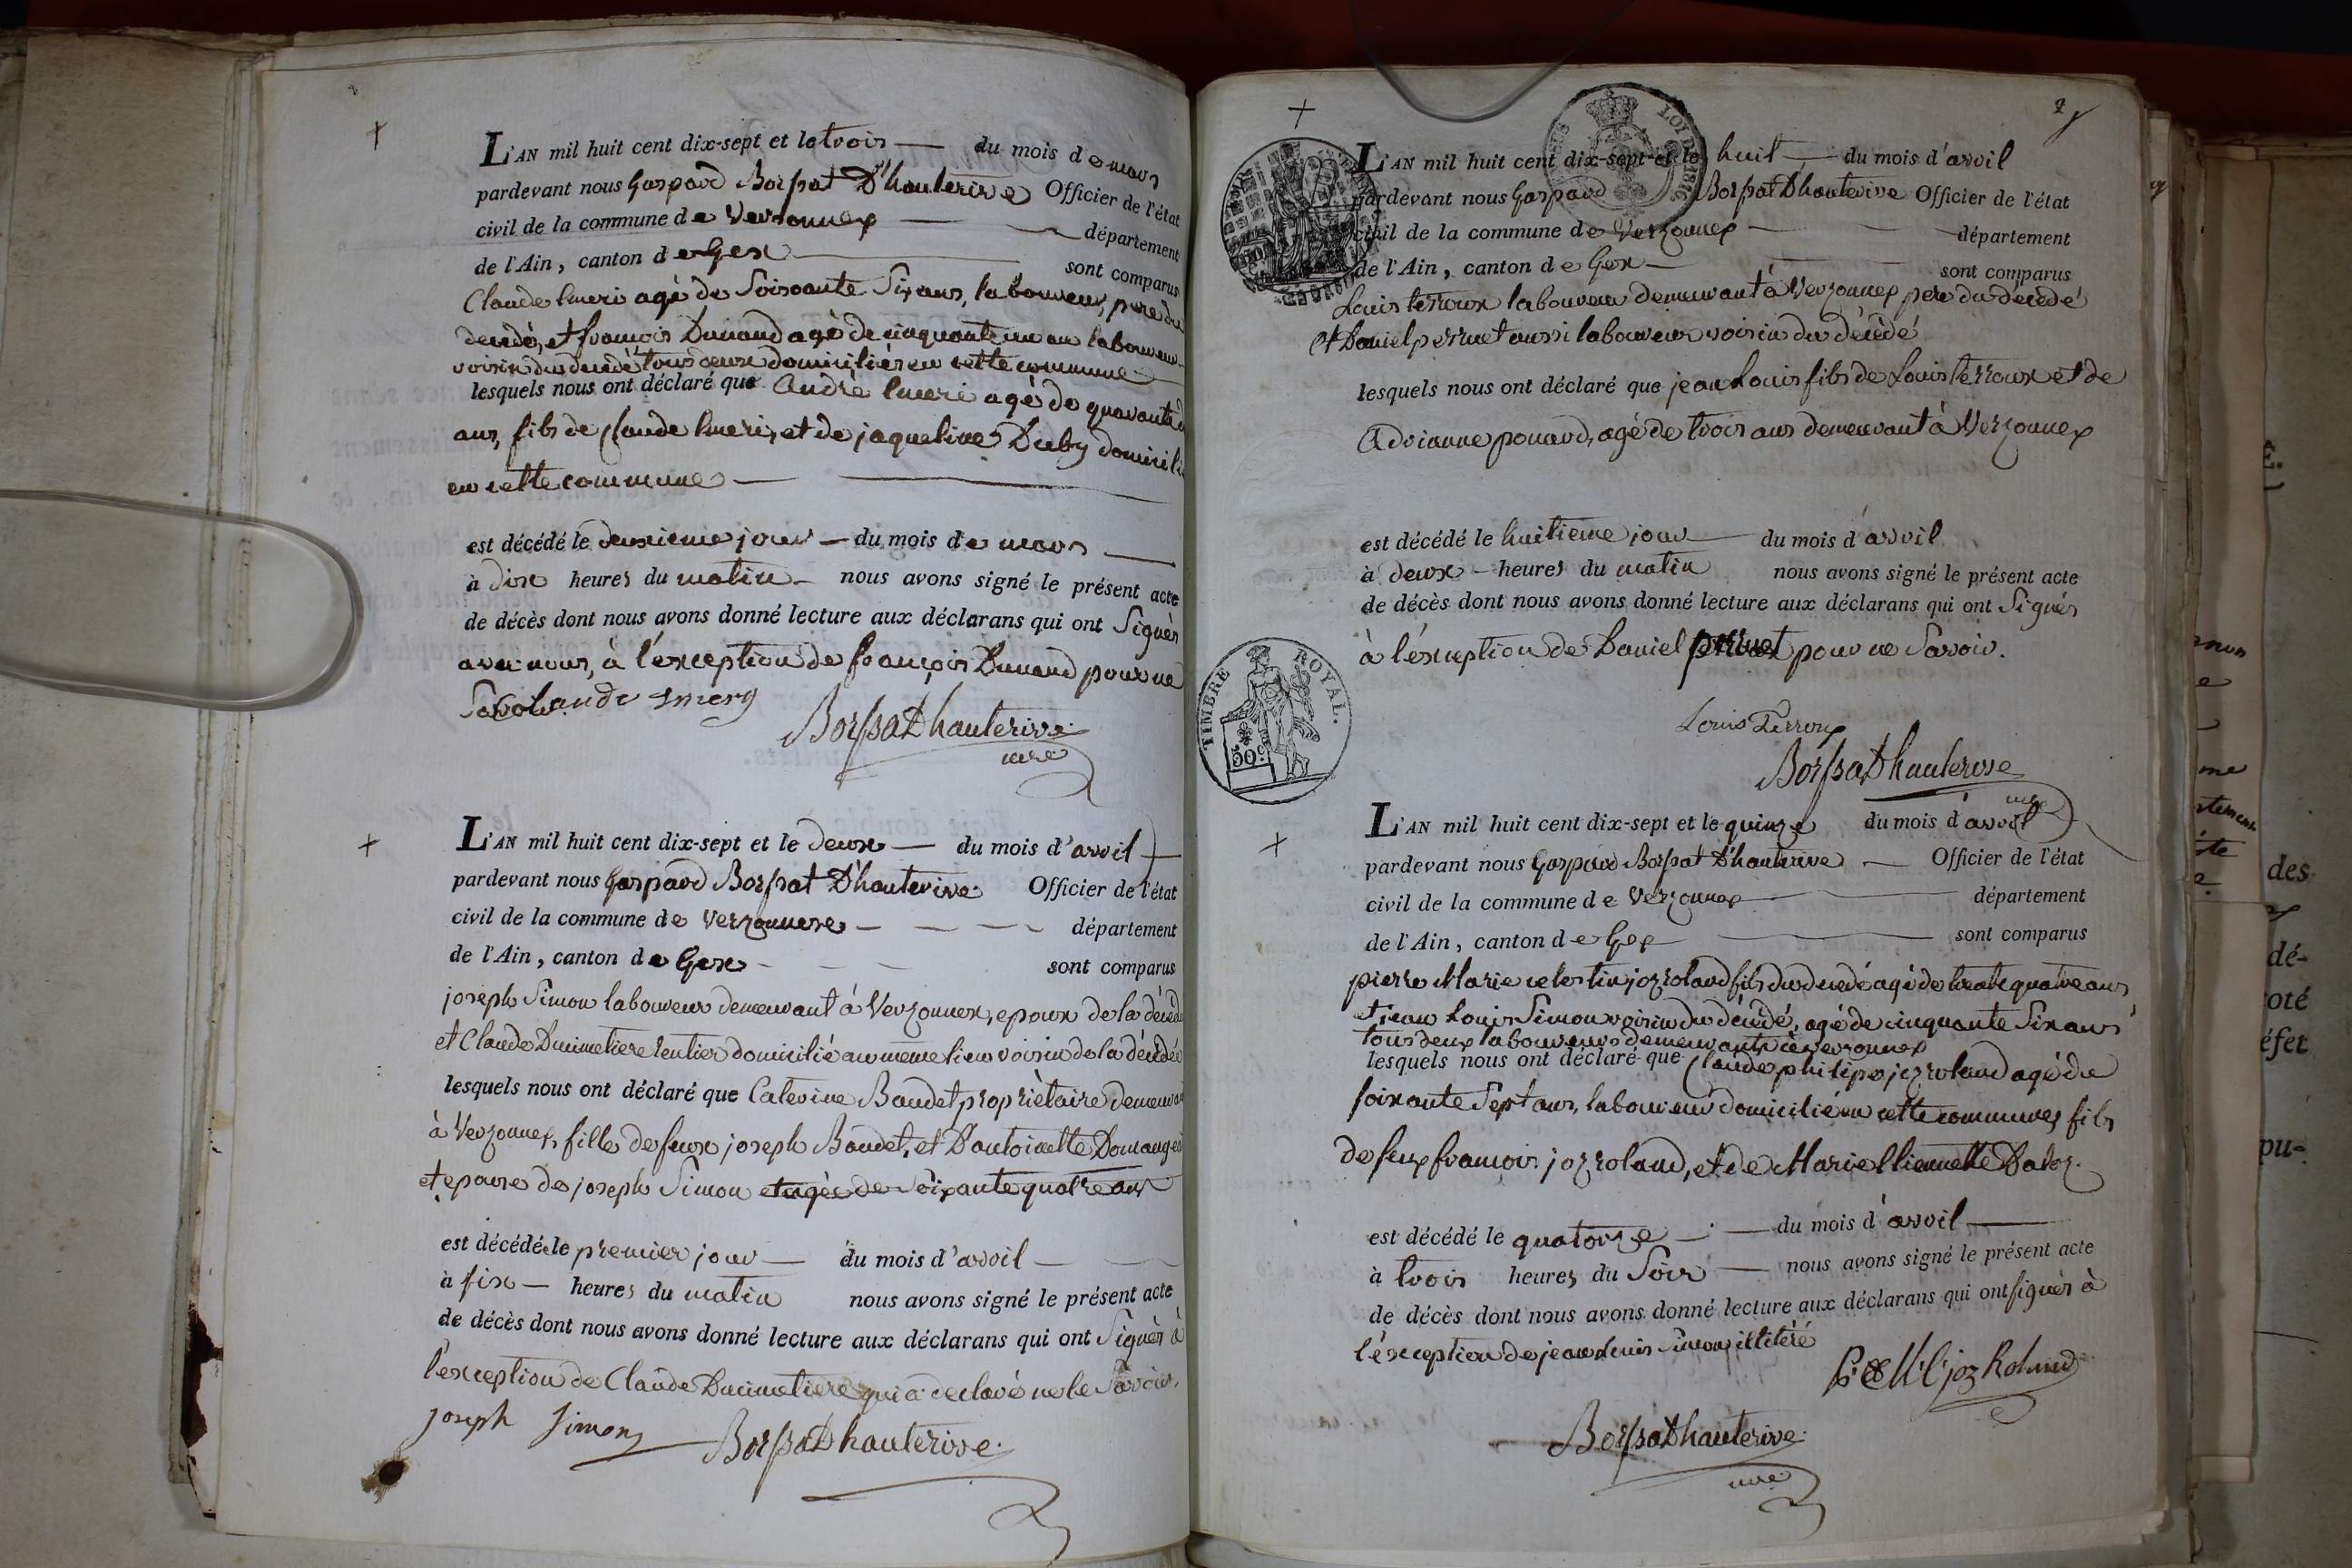 L'AN mil huit cent dix-sept et le trois — du mois de mars
pardevant nous Gaspard Borssat D'hauterive Officier de l'état
civil de la commune de Versonnex — département
de l'Ain, canton de Gex — sont comparus
Claude Emeri agé de Soixante Six ans, laboureur, pere du
decedé, et françois Dunand agé de cinquante un ans laboureur
voisin du decedé tous deux domiciliés en cette commune
lesquels nous ont déclaré que André Emeri agé de quarante
ans, fils de Claude Emeri, et de jaqueline Duby domicilié
en cette commune —
est décédé le deuxieme jour — du mois de mars —
à dix heures du matin — nous avons signé le présent acte
de décès dont nous avons donné lecture aux déclarans qui ont Signés
avec nous, à l'exception de françois Dunand pour ne
Savoir. Claude Emery
Borssat D hauterive
mre
L'AN mil huit cent dix-sept et le deux — du mois d'avril
pardevant nous Gaspard Borssat D'hauterive Officier de l'état
civil de la commune de Verzonnex — département
de l'Ain, canton de Gex — sont comparus
joseph Simon laboureur demeurant à Verzonnex, epoux de la décédée
et Claude Ducimetiere rentier domicilié au même lieu voisin de la décédée
lesquels nous ont déclaré que Caterine Baudet propriètaire demeurant
à Verzonnex, fille de feux joseph Baudet, et D'antoinette Domanget
et epouse de joseph Simon et agée de Soixante quatre ans
est décédée le premier jour — du mois d'avril —
à six — heures du matin nous avons signé le présent acte
de décès dont nous avons donné lecture aux déclarans qui ont Signés à
l'exception de Claude Ducimetiere qui a declaré ne le Savoir.
joseph Simon Borssat D hauterive.
L'AN mil huit cent dix-sept et le huit — du mois d'avril
pardevant nous Gaspard Borssat D'hauterive Officier de l'état
civil de la commune de Verzonnex — département
de l'Ain, canton de Gex — sont comparus
Louis terroux laboureur demeurant à Verzonnex pere du décedé
et Daniel perruet aussi laboureur voisin du décèdé
lesquels nous ont déclaré que jean Louis fils de Louis terroux et de
Adrianne ponard, agé de trois ans demeurant à Verzonnex
est décédé le huitieme jour — du mois d'avril
à deux — heures du matin nous avons signé le présent acte
de décès dont nous avons donné lecture aux déclarans qui ont Signés
à l'exception de Daniel perruet pour ne Savoir.
TIMBRE ROYAL.
50c
Louis Terroux
Borssat D hauterive
mre
L'AN mil huit cent dix-sept et le quinze du mois d'avril
pardevant nous Gaspard Borssat D'hauterive — Officier de l'état
civil de la commune de Verzonnex — département
de l'Ain, canton de Gex — sont comparus
pierre Marie celestin jozroland fils du decedé agé de trente quatre ans
et jean Louis Simon voisin du décédé, agé de cinquante Six ans
tous deux laboureurs demeurants à Verzonnex
lesquels nous ont déclaré que Claude philipe jozroland agé de
soixante Sept ans, laboureur domicilié en cette commune, fils
de feux françois jozroland, et de Marie Etiennette
est décédé le quatorze — du mois d'avril —
à trois heures du Soir — nous avons signé le présent acte
de décès dont nous avons donné lecture aux déclarans qui ont signés à
l'éxception de jean Louis Simon illitéré
joz Roland
Borssat D hauterive.
mre